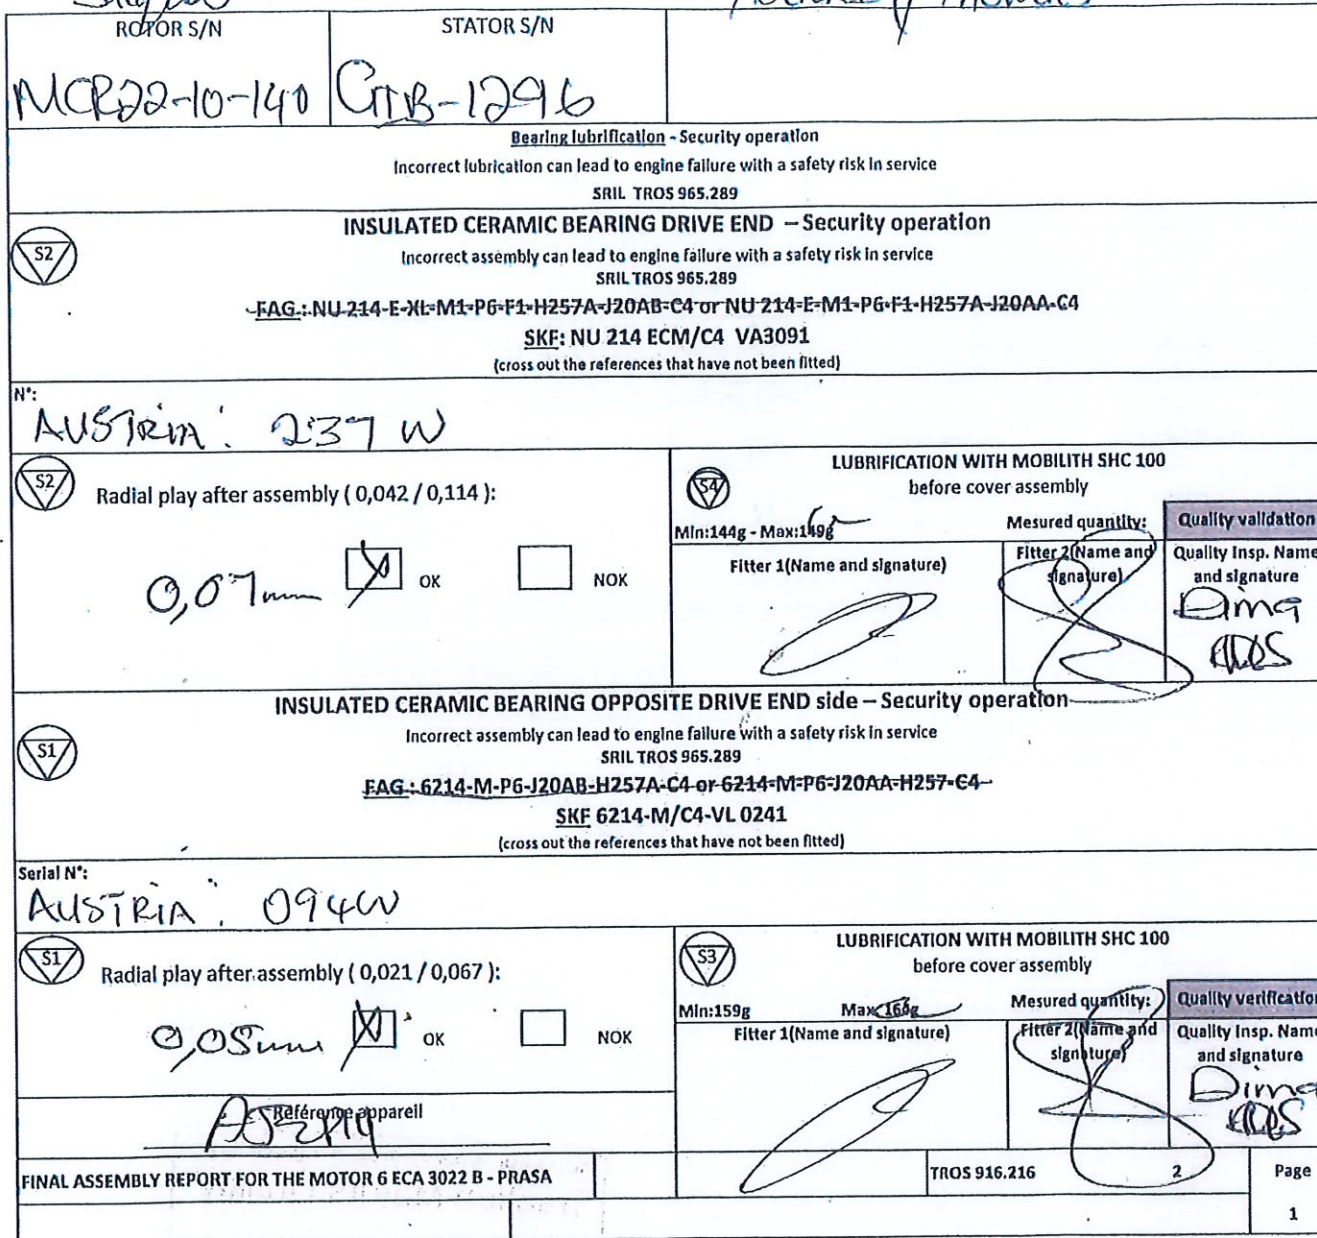 ROTOR S/N
STATOR S/N
MCR22-10-140
GTB-1296
Bearing lubrification - Security operation
Incorrect lubrication can lead to engine failure with a safety risk in service
SRIL TROS 965.289
S2
INSULATED CERAMIC BEARING DRIVE END – Security operation
Incorrect assembly can lead to engine failure with a safety risk in service
SRIL TROS 965.289
FAG : NU 214-E-XL-M1-P6-F1-H257A-J20AB-C4 or NU 214-E-M1-P6-F1-H257A-J20AA-C4
SKF: NU 214 ECM/C4 VA3091
(cross out the references that have not been fitted)
N°:
AUSTRIA: 237 W
S2
Radial play after assembly ( 0,042 / 0,114 ):
0,07mm
OK
NOK
S4
LUBRIFICATION WITH MOBILITH SHC 100
before cover assembly
Min:144g - Max:149g
Mesured quantity:
Quality validation
Fitter 1(Name and signature)
Fitter 2(Name and signature)
Quality Insp. Name and signature
Dima
INSULATED CERAMIC BEARING OPPOSITE DRIVE END side – Security operation
S1
Incorrect assembly can lead to engine failure with a safety risk in service
SRIL TROS 965.289
FAG : 6214-M-P6-J20AB-H257A-C4 or 6214-M-P6-J20AA-H257-C4
SKF 6214-M/C4-VL 0241
(cross out the references that have not been fitted)
Serial N°:
AUSTRIA: 094W
S1
Radial play after assembly ( 0,021 / 0,067 ):
0,05mm
OK
NOK
S3
LUBRIFICATION WITH MOBILITH SHC 100
before cover assembly
Min:159g
Max:166g
Mesured quantity:
Quality verification
Fitter 1(Name and signature)
Fitter 2(Name and signature)
Quality Insp. Name and signature
Dima
Référence appareil
FINAL ASSEMBLY REPORT FOR THE MOTOR 6 ECA 3022 B - PRASA
TROS 916.216
2
Page
1